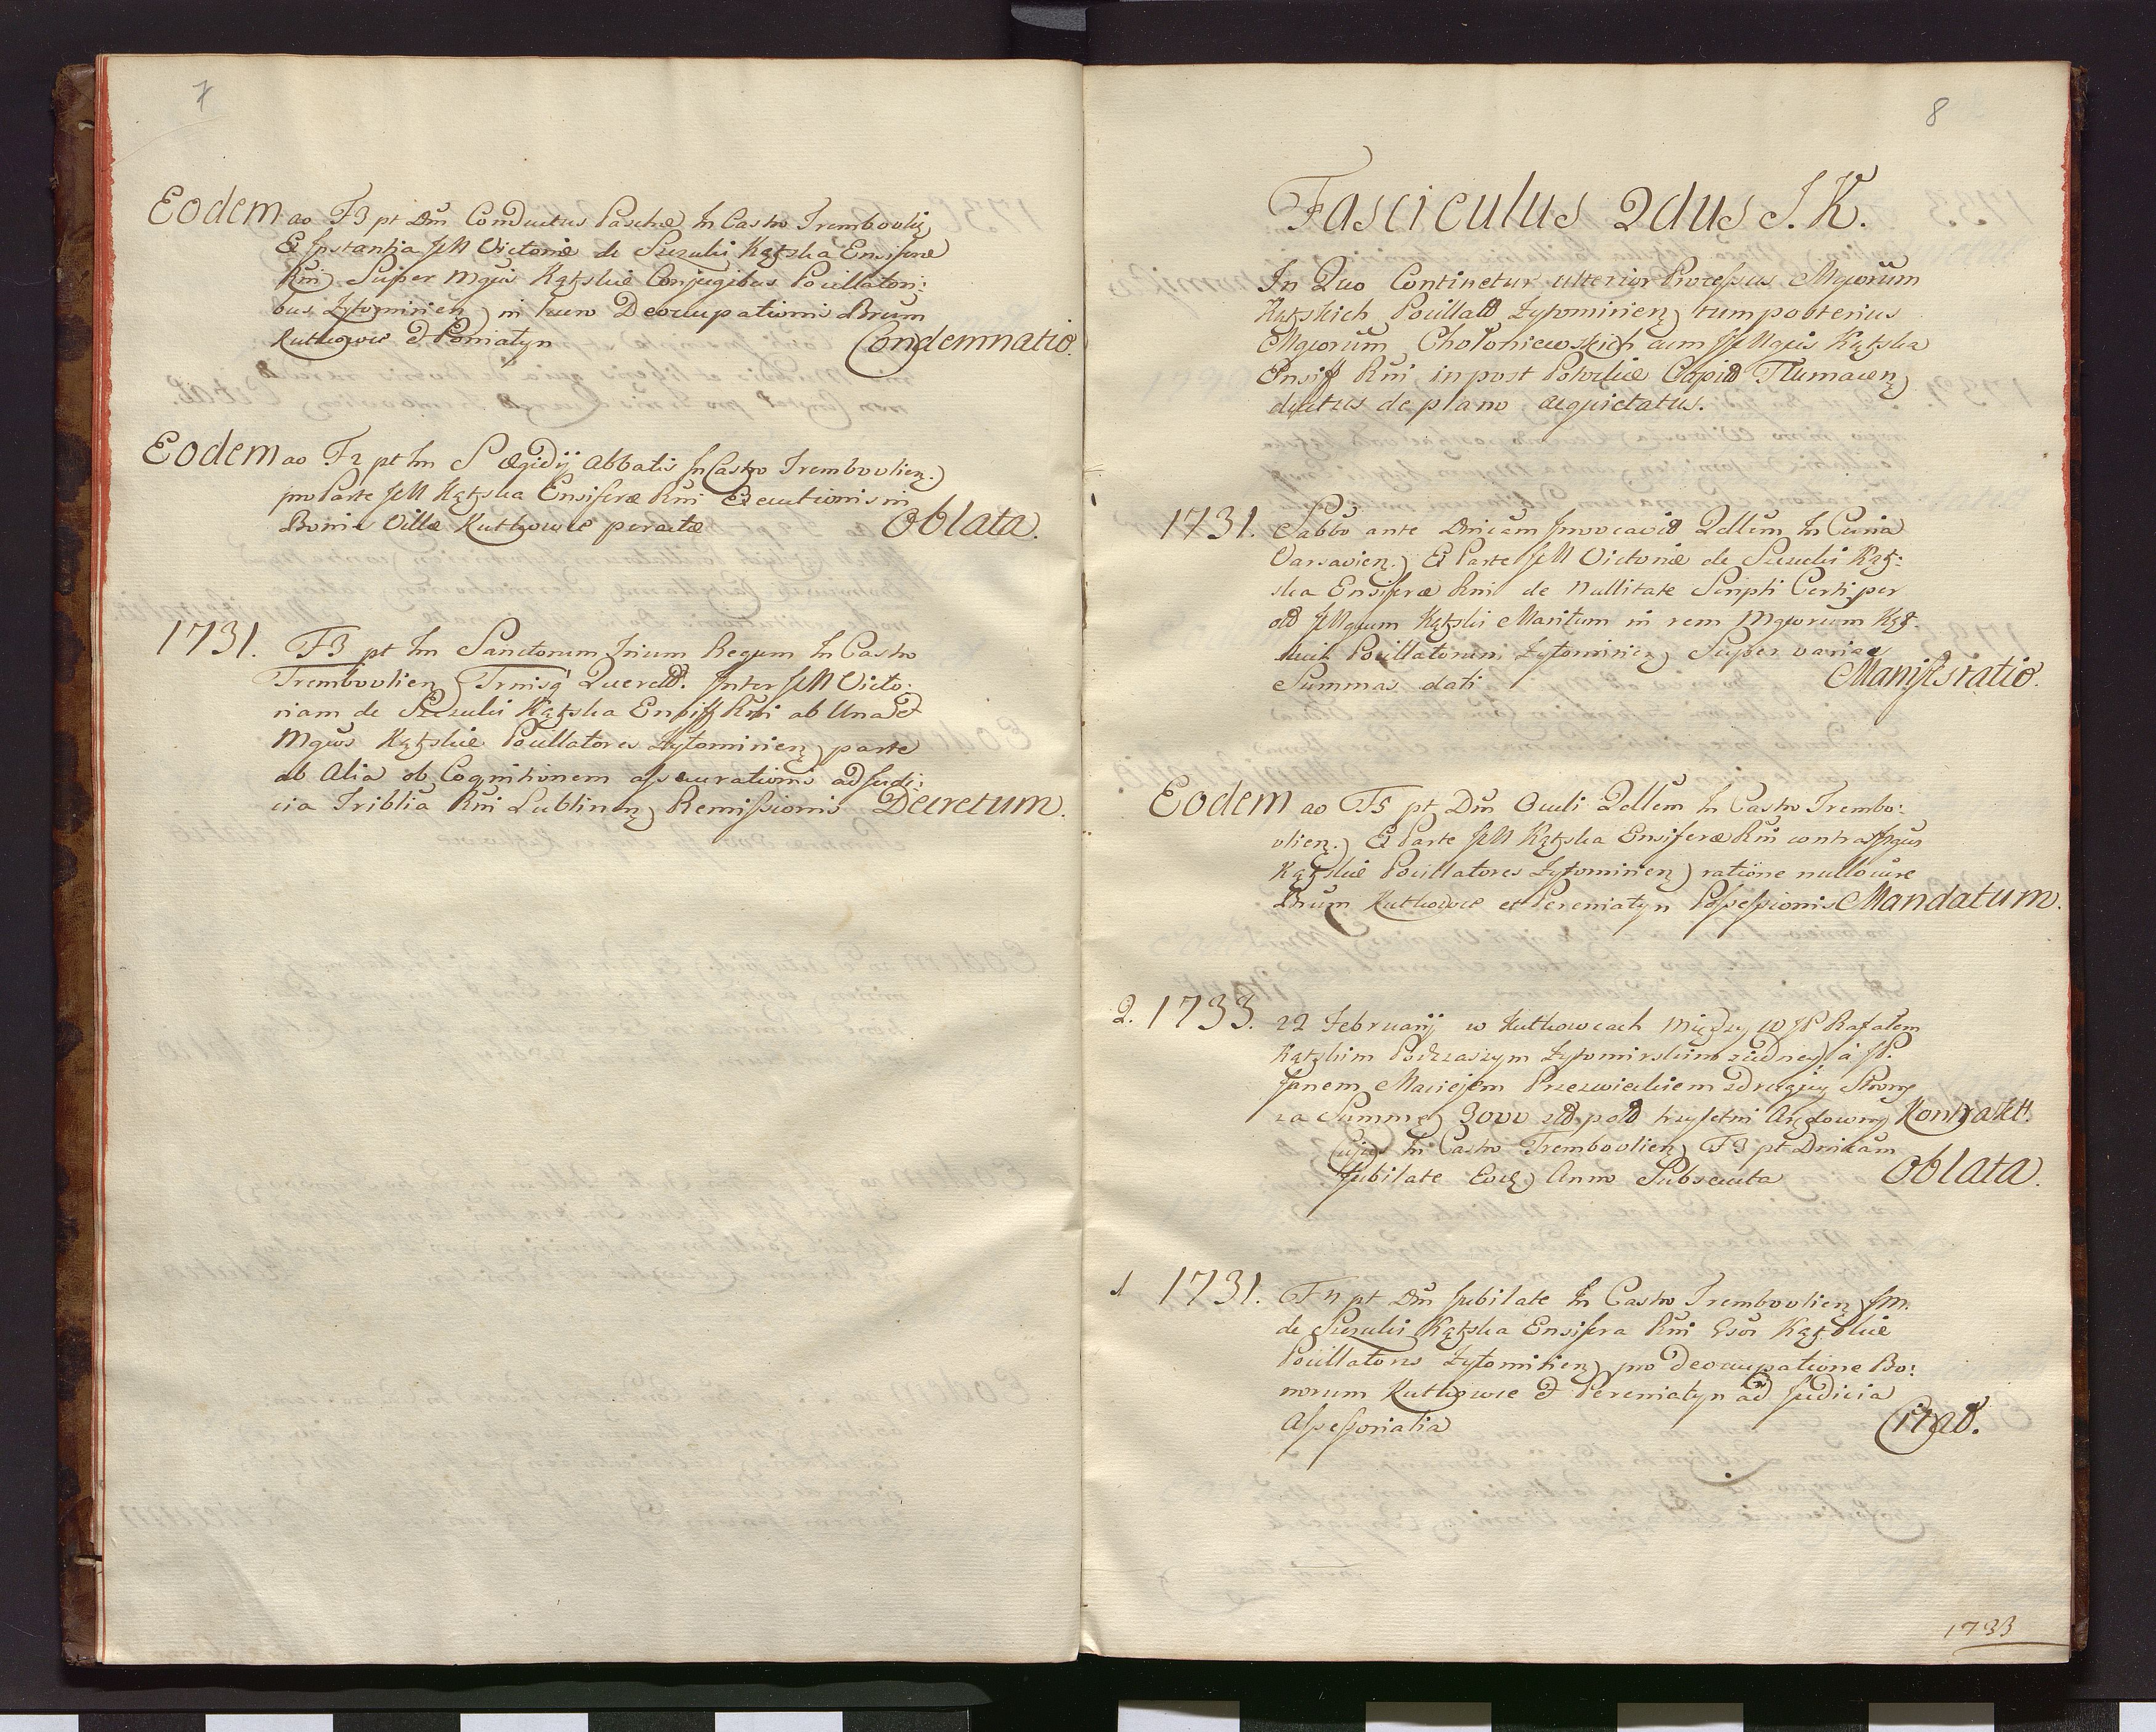 7
Eodem ao F3 pt Dm Conductus Paschæ In Castro Trembovlię
Ex Instantia JM Victoriæ de Szczuki Kątska Ensiferæ
Rni Super Mgcis Kątskie Conjugibus Pocillatori:
bus Zytominień in luro Deoccupationis Brum
Kutkowce et Poniatyn Condemnatio.
Eodem ao F2 pt Im S Ægidij Abbatis In Castro Trembovlien.
pro Parte JM Kątska Ensiferæ Rni Executionis in
Bonis Villæ Kutkowce peractæ Oblata.
1731. F3 pt Im Sanctorum Trium Regum In Castro
Trembovlien Trnisq Querela. Inter JM Victo:
riam de Szczuki Kątska Ensiff Rni ab Una et
Mgcos Kątskie Pocillatores Zytominien parte
ab Alia ob Cognitionem assecurationis ad Judi:
cia Triblia Rni Lublinen Remissionis Decretum.
8
Fasciculus 2dus J. K.
In Quo Continetur ulterior Processus Mgcorum
Kątskich Pocillat Zytominien tum posterius
Mgcorum Chołoniewskich cum JMgcis Kątska
Ensiff Rni in post Potocka Capit Tlumacen
ductus de plano acquietatus.
1731. Sabbo ante Dnicam Invocavit Qellem In Curia
Varsavien. Ex Parte JM Victoriæ de Szczuki Kąt:
ska Ensiferæ Rni de Nullitate Scripti Certi per
old JMgcum Kątski Maritum in rem Mgcorum Kąt:
skich Pocillatorum Zytominien Super varias
Summas dati Manifestatio.
Eodem ao F5 pt Dm Oculi Qellem In Castro Trembo:
vlien. Ex Parte JM Kątska Ensiferæ Rni contra Mgcos
Kątskie Pocillatores Zytominien ratione nullo iure
Brum Kutkowce et Pereniatyn Possessionis Mandatum.
2. 1733. 22 Februarij w Kutkowcach między W JP Rafałem
Kątskim Podczaszym Zytomirskim z iedney, á JP.
Janem Maciejem Przezwieckiem z drugiey Strony
za Summę 3000 zł. pol trzyletni Arędowny Kontrakt.
Cujus In Castro Trembovlien F3 pt Dnicam
Jubilate Eod Anno Subsecuta Oblata.
1 1731. F2 pt Dm Jubilate In Castro Trembovlien JM.
de Szczuki Kątska Ensifera Rni Gsos Kątskie
Pocillatores Zytominien pro deoccupatione Bo:
norum Kutkowce et Pereniatyn ad Judicia
Assessorialia Citat.
1733